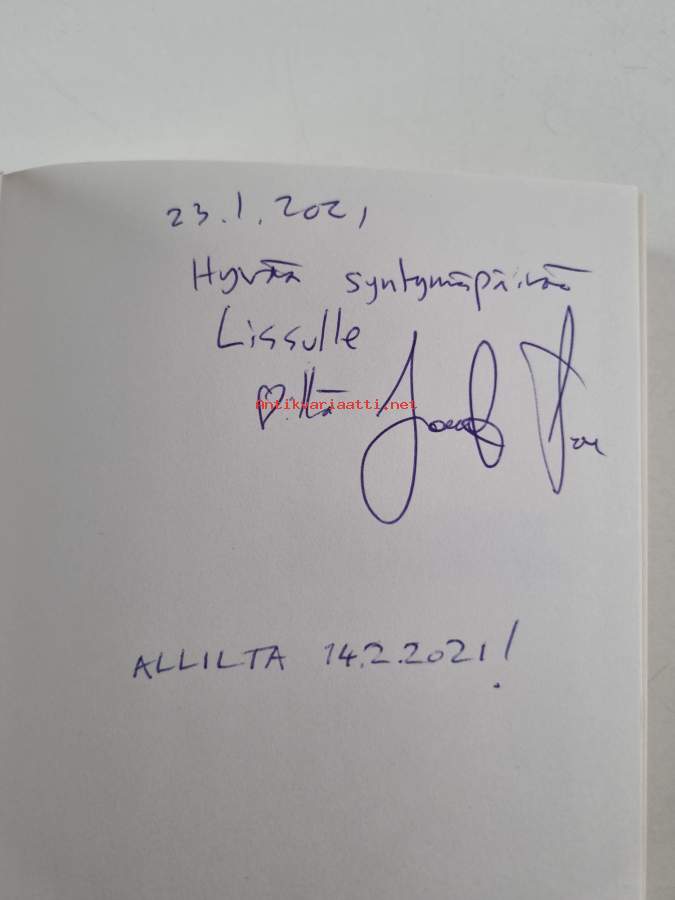 23.1.2021
Hyvää syntymäpäivää
Lissulle
♡:ltä
Antikvariaatti.net
ALLILTA 14.2.2021!